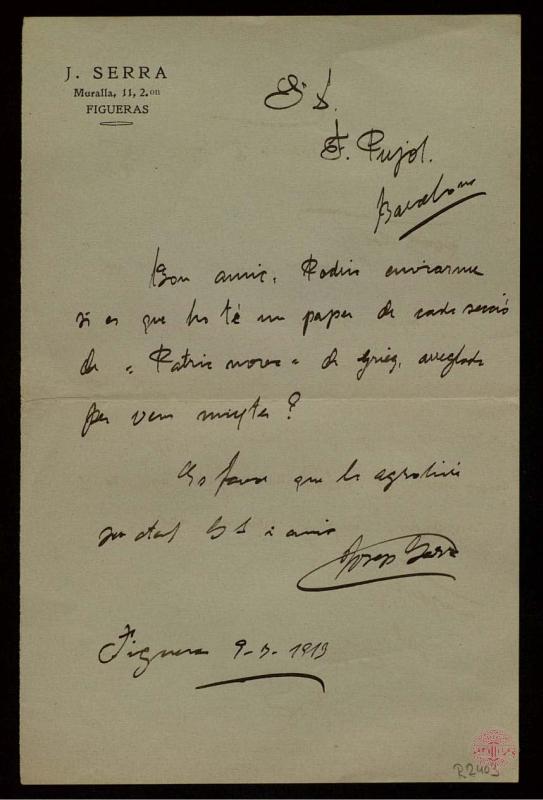 J. SERRA
Muralla, 11, 2.on
FIGUERAS
Sr D.
F. Pujol.
Barcelona
Bon amic, Podria enviarme
si es que ho té un paper de cada secció
de « Patria nova » de Grieg, arreglada
per veus mixtes?
Es favor que li agrairà
son etad SS i amic
Josep Serra
Figueras 9-5-1913
R2403